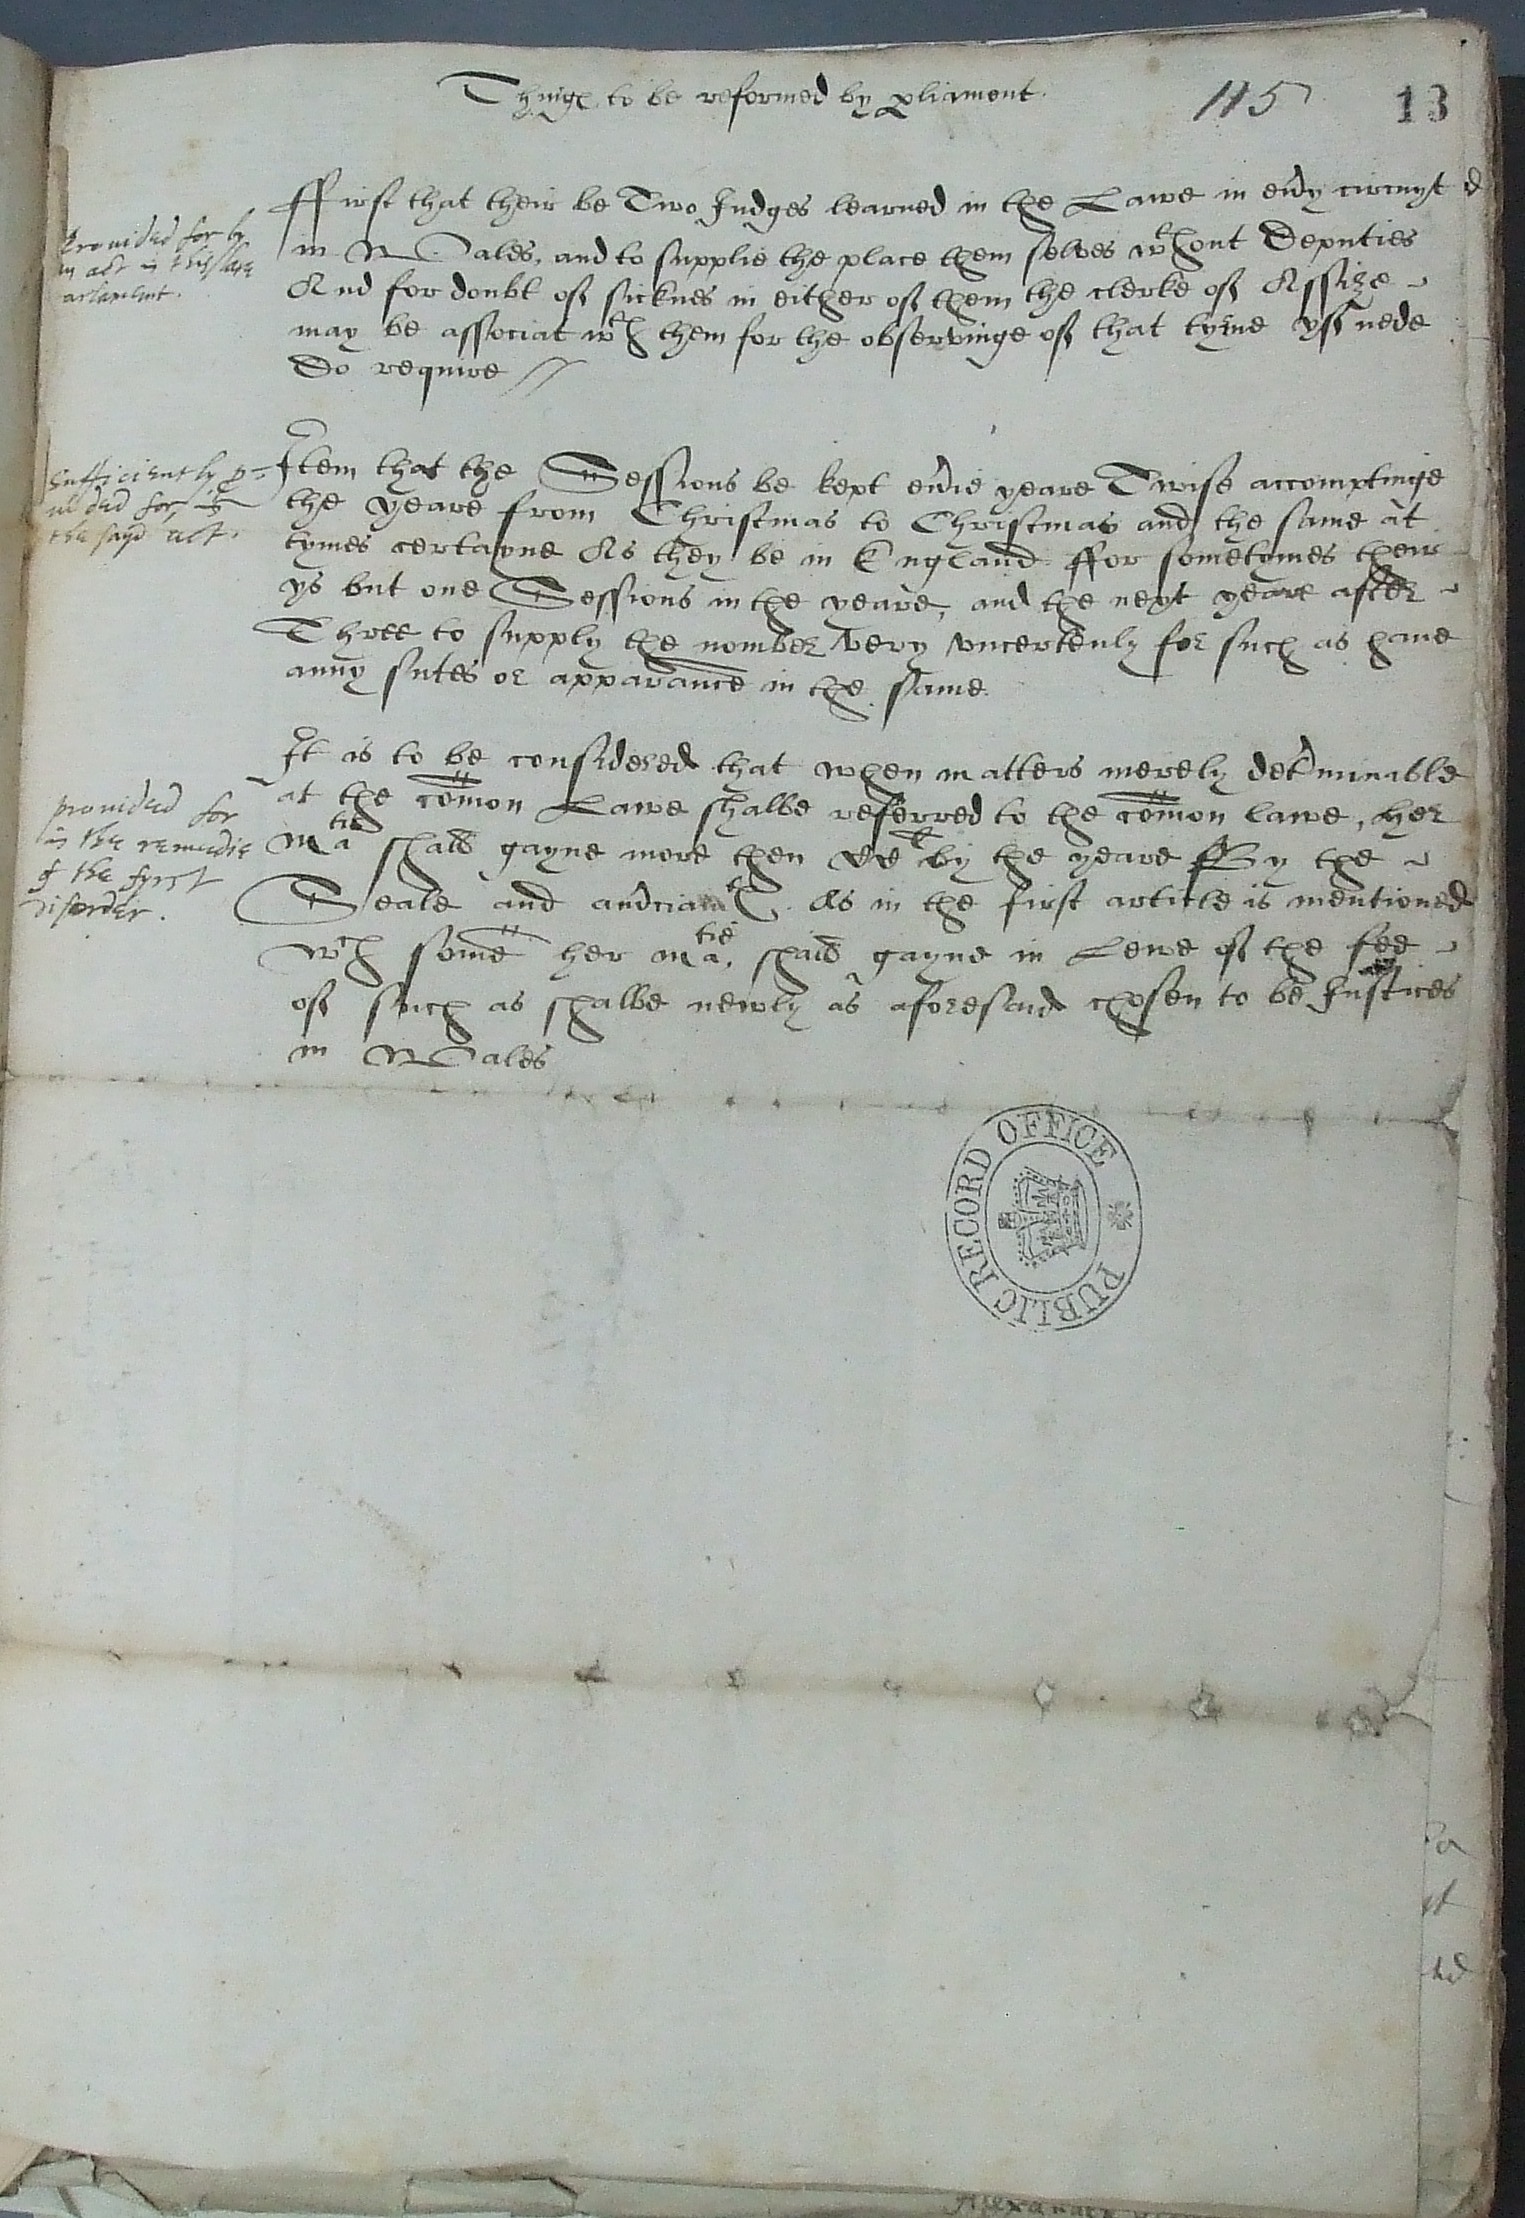 Thinges to be reformed by pliament.
115
13
Provided for by
an act in this late
parlament.
ffirst that their be Two Judges learned in the Lawe in eu'y circuyt
in Wales, and to supplie the place them selves wthout Deputies
And for doubt of sicknes in either of them the clerke of Assize
may be associat wth them for the observinge of that tyme yf nede
Do require //
sufficiently p=
uided for in
the sayd act.
Item that the Sessions be kept eu'ie yeare Twise accomptinge
the yeare from Christmas to Christmas and the same at
tymes certayne As they be in England ffor sometymes their
ys but one Sessions in the yeare, and the next yeare after
Three to supply the nomber very vncertenly for such as haue
anny sutes or apparance in the same.
provided for
in the remedie
of the fyrst
disorder.
It is to be considered that when matters merely det'minable
at the comon Lawe shalbe referred to the comon lawe, her
Matie shall gayne more then by the yeare By the
Seale and As in the first article is mentioned
wch some her Matie shall gayne in Lewe of the fee
of such as shalbe newly as aforesaid chosen to be Justices
in Wales
PUBLIC RECORD OFFICE